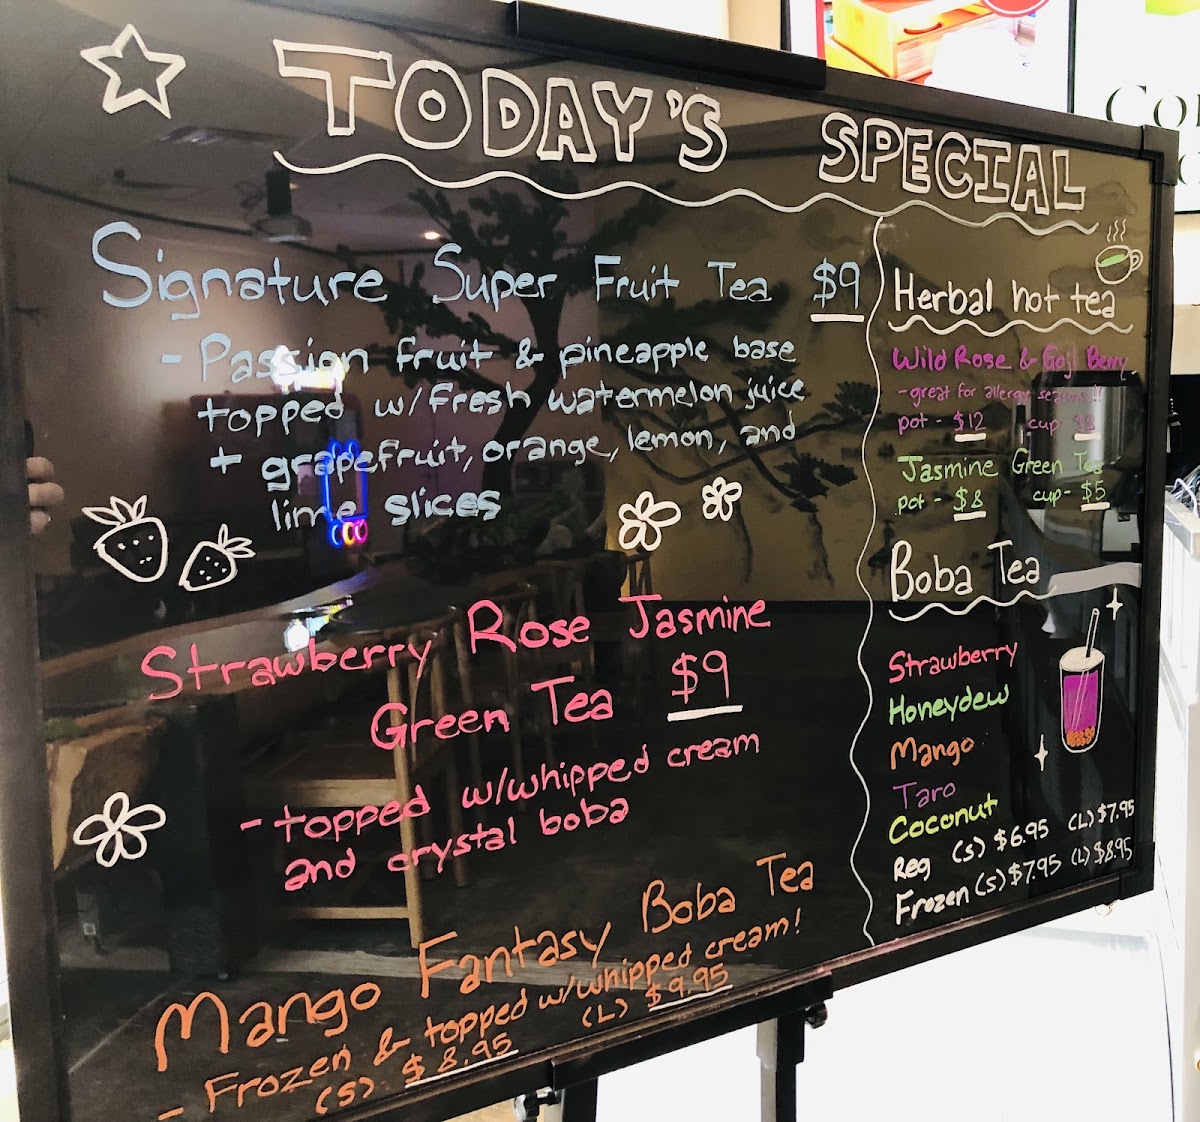 TODAY'S SPECIAL
Signature Super Fruit Tea $9
- Passion fruit & pineapple base
topped w/fresh watermelon juice
+ grapefruit, orange, lemon, and
lime slices
Strawberry Rose Jasmine
Green Tea $9
- topped w/whipped cream
and crystal boba
Mango Fantasy Boba Tea
- Frozen & topped w/whipped cream!
(S) $8.95 (L) $9.95
Herbal hot tea
Wild Rose & Goji Berry
- great for allergy season!!
pot - $12 cup
Jasmine Green Tea
pot - $8 cup - $5
Boba Tea
Strawberry
Honeydew
Mango
Taro
Coconut
Reg (S) $6.95 (L) $7.95
Frozen (S) $7.95 (L) $8.95